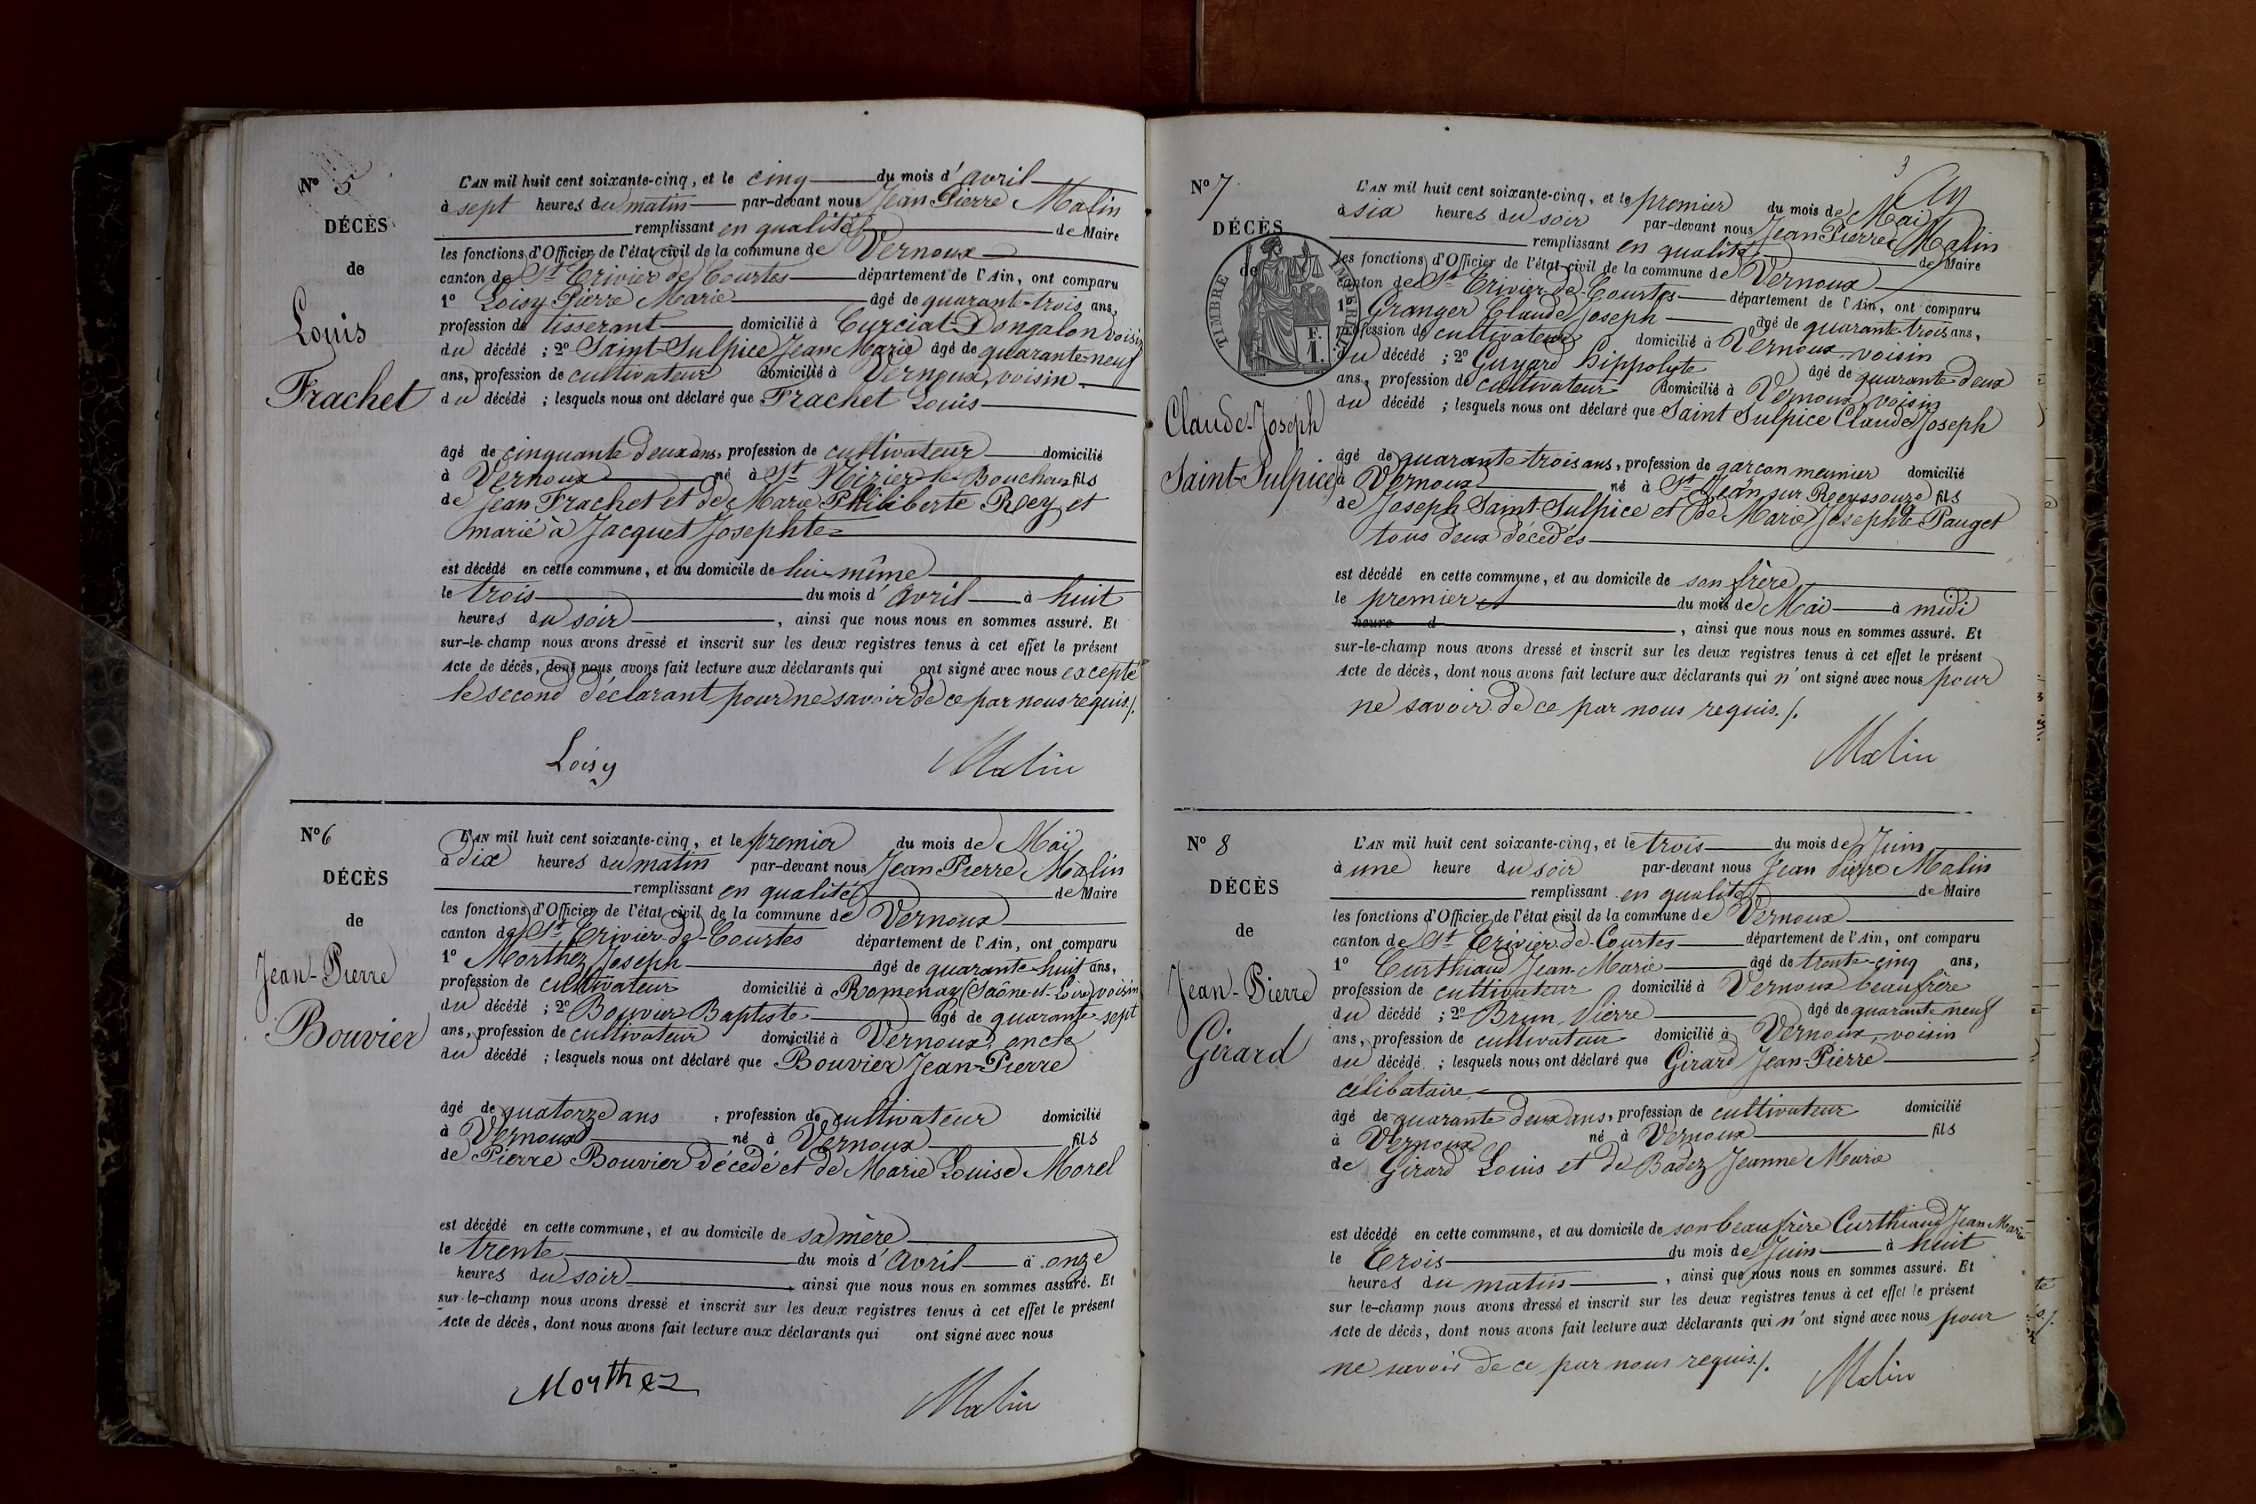 Nº 5
DÉCÈS
de
Louis
Frachet
L'AN mil huit cent soixante-cinq, et le cinq du mois d'avril
à sept heures du matin par-devant nous Jean Pierre Malin
remplissant en qualité de Maire
les fonctions d'Officier de l'état civil de la commune de Vernoux
canton de St Trivier de Courtes département de l'Ain, ont comparu
1º Loisy Pierre Marie âgé de quarant-trois ans,
profession de tisserant domicilié à Curciat-Dongalon voisin
du décédé ; 2º Saint-Sulpice Jean Marie âgé de quarante-neuf
ans, profession de cultivateur domicilié à Vernoux, voisin
du décédé ; lesquels nous ont déclaré que Frachet Louis
âgé de cinquante deux ans, profession de cultivateur domicilié
à Vernoux né à St Nizier-le-Bouchoux fils
de Jean Frachet et de Marie Philiberte Rey, et
marié à Jacquet Josephte
est décédé en cette commune, et au domicile de lui-même
le trois du mois d'avril à huit
heures du soir, ainsi que nous nous en sommes assuré. Et
sur-le-champ nous avons dressé et inscrit sur les deux registres tenus à cet effet le présent
Acte de décès, dont nous avons fait lecture aux déclarants qui ont signé avec nous excepté
le second déclarant pour ne savoir de ce par nous requis./.
Loisy Malin
Nº 6
DÉCÈS
de
Jean-Pierre
Bouvier
L'AN mil huit cent soixante-cinq, et le premier du mois de Mai
à dix heures du matin par-devant nous Jean Pierre Malin
remplissant en qualité de Maire
les fonctions d'Officier de l'état civil de la commune de Vernoux
canton de St Trivier-de-Courtes département de l'Ain, ont comparu
1º Morthez Joseph âgé de quarante-huit ans,
profession de cultivateur domicilié à Romenay (Saône-et-Loire) voisin
du décédé ; 2º Bouvier Baptiste âgé de quarante-sept
ans, profession de cultivateur domicilié à Vernoux, oncle
du décédé ; lesquels nous ont déclaré que Bouvier Jean-Pierre
âgé de quatorze ans, profession de cultivateur domicilié
à Vernoux né à Vernoux fils
de Pierre Bouvier décédé et de Marie Louise Morel
est décédé en cette commune, et au domicile de sa mère
le trente du mois d'avril à onze
heures du soir, ainsi que nous nous en sommes assuré. Et
sur-le-champ nous avons dressé et inscrit sur les deux registres tenus à cet effet le présent
Acte de décès, dont nous avons fait lecture aux déclarants qui ont signé avec nous
Morthez Malin
3
Nº 7
DÉCÈS
de
TIMBRE IMPÉRIAL
F.
1.
Claude-Joseph
Saint-Sulpice
L'AN mil huit cent soixante-cinq, et le premier du mois de Mai
à six heures du soir par-devant nous Jean Pierre Malin
remplissant en qualité de Maire
les fonctions d'Officier de l'état civil de la commune de Vernoux
canton de St Trivier-de-Courtes département de l'Ain, ont comparu
1º Granger Claude Joseph âgé de quarante-trois ans,
profession de cultivateur domicilié à Vernoux, voisin
du décédé ; 2º Guyard Hippolyte âgé de quarante deux
ans, profession de cultivateur domicilié à Vernoux, voisin
du décédé ; lesquels nous ont déclaré que Saint Sulpice Claude Joseph
âgé de quarante trois ans, profession de garçon meunier domicilié
à Vernoux né à St Jean sur Reyssouze fils
de Joseph Saint-Sulpice et de Marie Josephte Pauget
tous deux décédés
est décédé en cette commune, et au domicile de son frère
le premier du mois de Mai à midi
heure d, ainsi que nous nous en sommes assuré. Et
sur-le-champ nous avons dressé et inscrit sur les deux registres tenus à cet effet le présent
Acte de décès, dont nous avons fait lecture aux déclarants qui n'ont signé avec nous pour
ne savoir de ce par nous requis./.
Malin
Nº 8
DÉCÈS
de
Jean-Pierre
Girard
L'AN mil huit cent soixante-cinq, et le trois du mois de Juin
à une heure du soir par-devant nous Jean Pierre Malin
remplissant en qualité de Maire
les fonctions d'Officier de l'état civil de la commune de Vernoux
canton de St Trivier-de-Courtes département de l'Ain, ont comparu
1º Curthiaud Jean-Marie âgé de trente-cinq ans,
profession de cultivateur domicilié à Vernoux beau frère
du décédé ; 2º Brun Pierre âgé de quarante neuf
ans, profession de cultivateur domicilié à Vernoux, voisin
du décédé ; lesquels nous ont déclaré que Girard Jean-Pierre
célibataire
âgé de quarante deux ans, profession de cultivateur domicilié
à Vernoux né à Vernoux fils
de Girard Louis et de Badez Jeanne Marie
est décédé en cette commune, et au domicile de son beau frère Curthiaud Jean Marie
le Trois du mois de Juin à huit
heures du matin, ainsi que nous nous en sommes assuré. Et
sur le-champ nous avons dressé et inscrit sur les deux registres tenus à cet effet le présent
Acte de décès, dont nous avons fait lecture aux déclarants qui n'ont signé avec nous pour
ne savoir de ce par nous requis./.
Malin